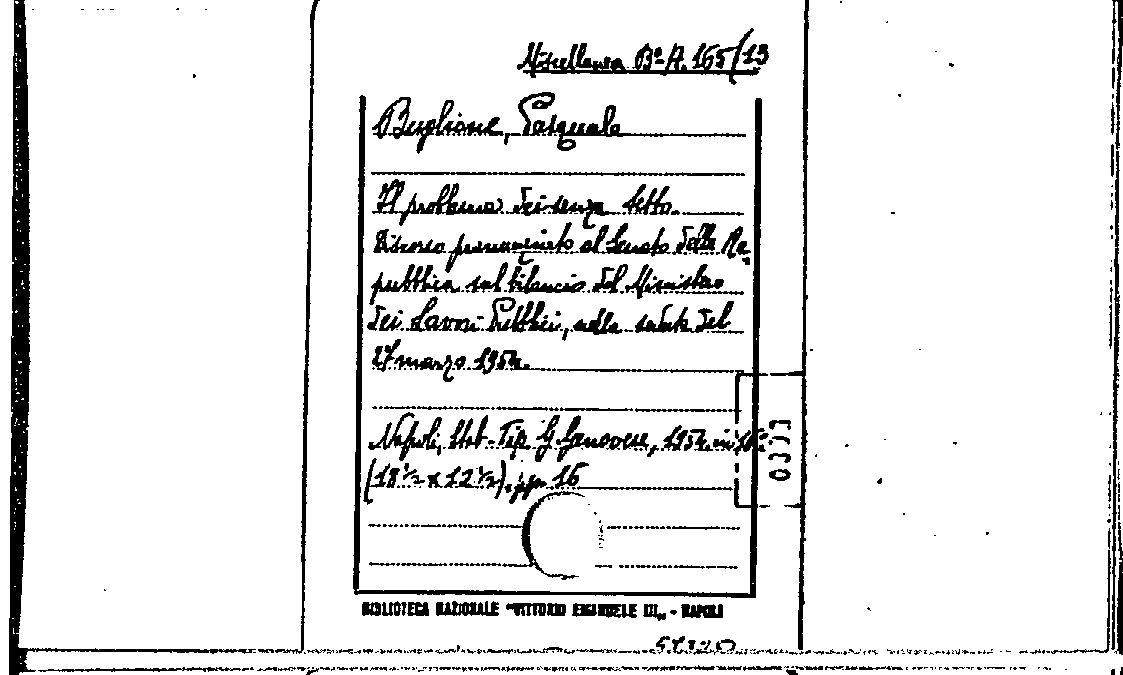 Miscellanea Bª A. 165/13
Buglione, Pasquale
Il problema dei senza tetto.
Discorso pronunziato al Senato della Re-
pubblica sul bilancio del Ministero
dei Lavori Pubblici, nella seduta del
27 marzo 1954.
Napoli, Stab. Tip. G. Genovese, 1954. in 16º
(18 ½ x 12 ½), pp. 16
BIBLIOTECA NAZIONALE "VITTORIO EMANUELE III„ - NAPOLI